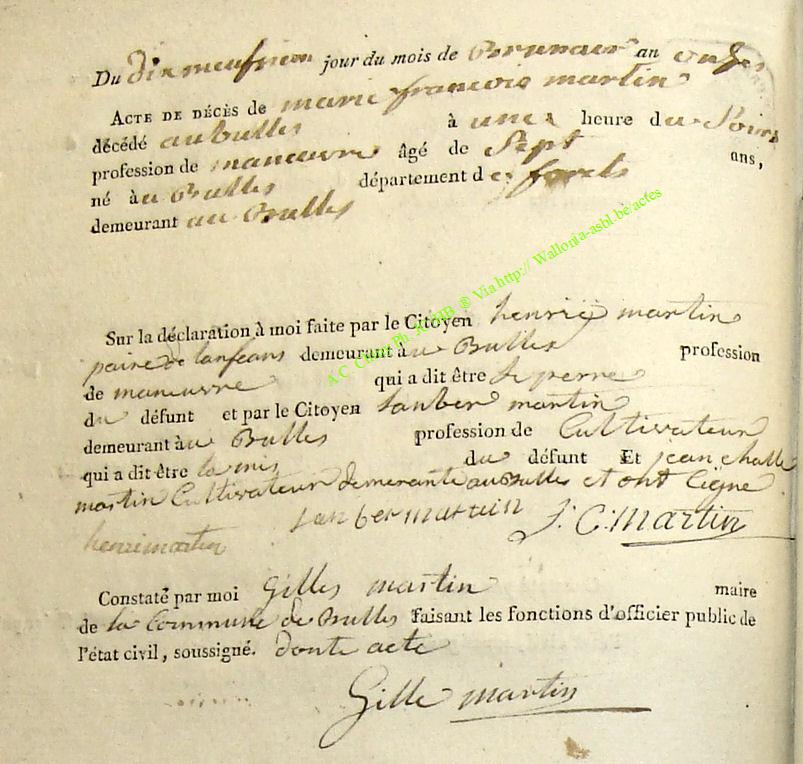 Du dixneufvieme jour du mois de Brumair an onze
ACTE DE DÉCÈS de marie françois martin
décédé au bulles à une heure du Soire
profession de manœuvre âgé de Sept ans,
né à u Bulles département des forets
demeurant au Bulles
Sur la déclaration à moi faite par le Citoyen henrij martin
paire de lanfeans demeurant à u Bulles profession
de manœuvre qui a dit être le perre
du défunt et par le Citoyen Lamber martin
demeurant à u Bulles profession de Cultivateur
qui a dit être la mis du défunt Et jean challe
martin Cultivateur demerante au Bulles et ont Cigne
lambermartin J: C: martin
henri martin
Constaté par moi Gilles martin maire
de la Commune de Bulles faisant les fonctions d'officier public de
l'état civil, soussigné. donte acte
Gille martin
Via http:// Wallonia-asbl.be/actes